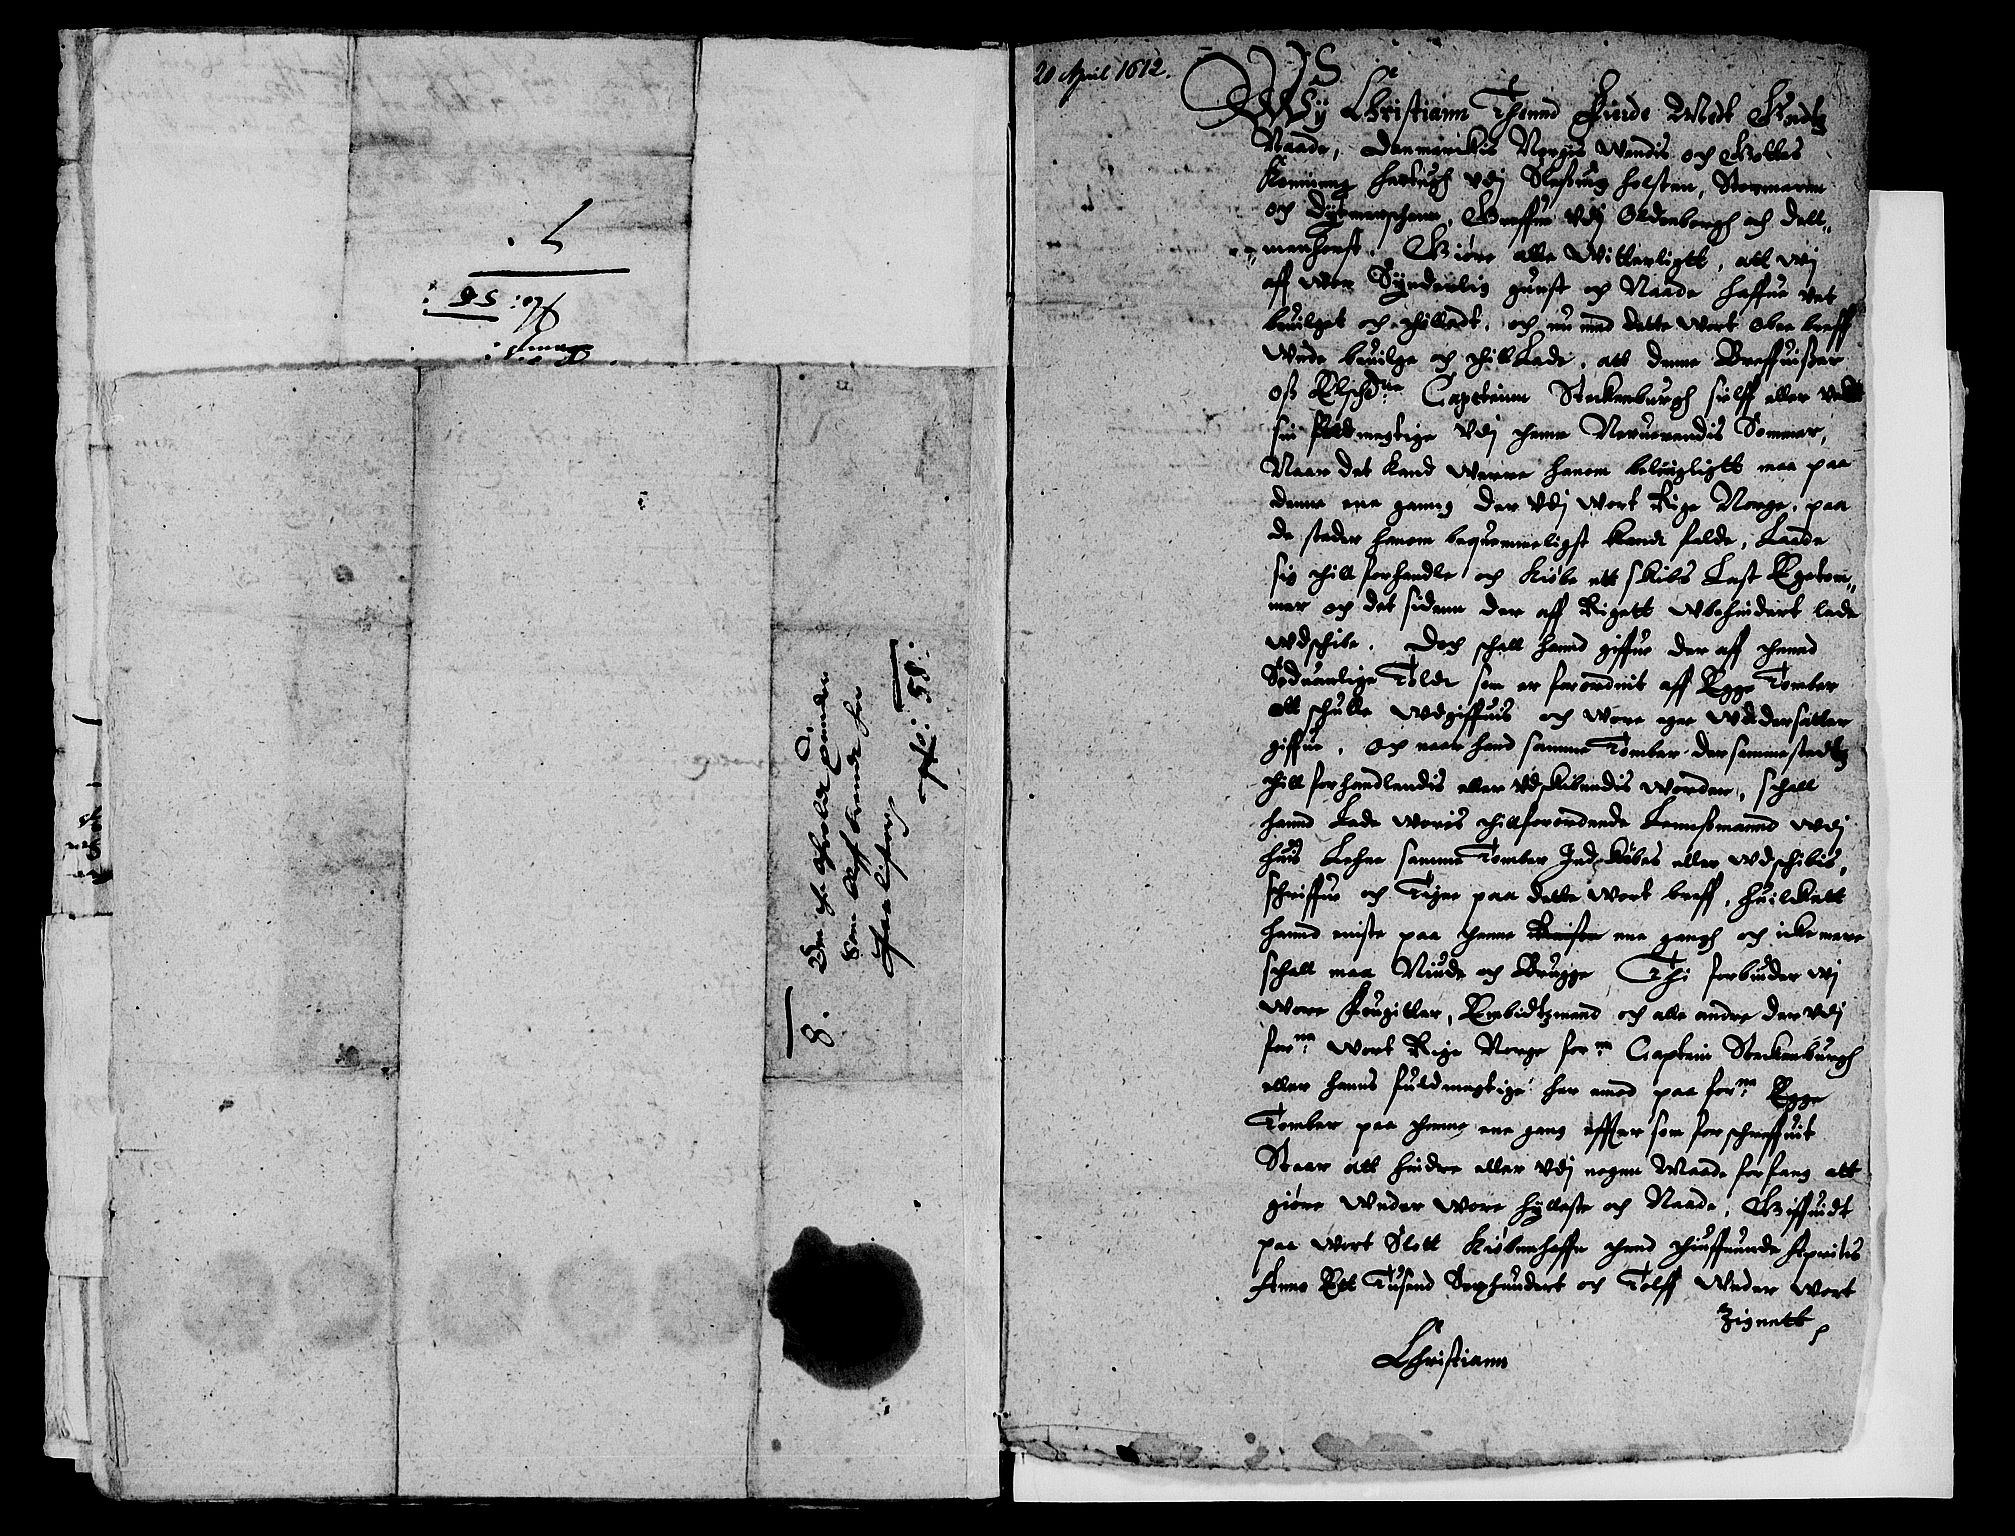 7.
No: 58:
8.
No: 58:
20 April 1612.
Wij Christiann Thennd Fierde Medt Gudtz
Naade, Danmarckis Norges Wendis och Gottes
Konning Hertugh vdj Sleßuig Holsten, Stormarn
och Dytmerschenn, Greffue vdj Oldenborgh och Dell„
„menhorst. Giøre alle Witterligtt, att wij
aff wor Synderlig gunst och Naade haffue vnt
beuilget och thilladt, och nu med dette wort obne breff
Wnde beuilge och thillLade, att denne Breffuißer
oß Elschel: Capteinn Steckenburgh sielff eller vedt
sin fuldmegtige vdj thenne Neruerendis Sommer,
Naar det kand werre hanom beleiligtt maa paa
denne ene ganng der vdj wort Rige Norge, paa
de steder hanom bequemmeligst kand falde, Laade
sig thill forhandle och kiøbe ett skibs Last Egetom„
mer och det sidenn der aff Rigett wbehindert lade
wdschibe. Doch schall hannd giffue der aff thennd
Seduanlige Told som er forordnit aff Egge Tomber
att schulle wdgiffuis och wore egne Wndersatter
giffue, Och naar hand samme Tomber dersammestedtz
thill forhandlendis eller vdskibendis worder, schall
hannd Lade woris thillforordnede Lennsmannd wdj
huis Lehne samme Tomber Ind kiøbes eller wdschibis,
schriffue och Tegne paa dette wort breff, huilckett
hannd eniste paa thenne ene gangh och icke mere
schall maa Niude och Brugge Thi forbiuder wij
wore Fougitter, Embidtzmend och alle andre der vdj
forne: wort Rige Norge forne: Captein Steckenburgh
eller hanns fuldmegtige her emod paa forne: Egge
Tomber paa thenne ene gang effter som forschreffuit
Staar att hindre eller vdj nogen Maade forfang att
giøre wnder wore hylleste och Naade, Giffuidt
paa wort Slott Kiøbenhaffn thend thiuffuende Aprilis
Anno Ett Tusend Sexhundert och Tolff Wnder wort
Zignett
Christiann